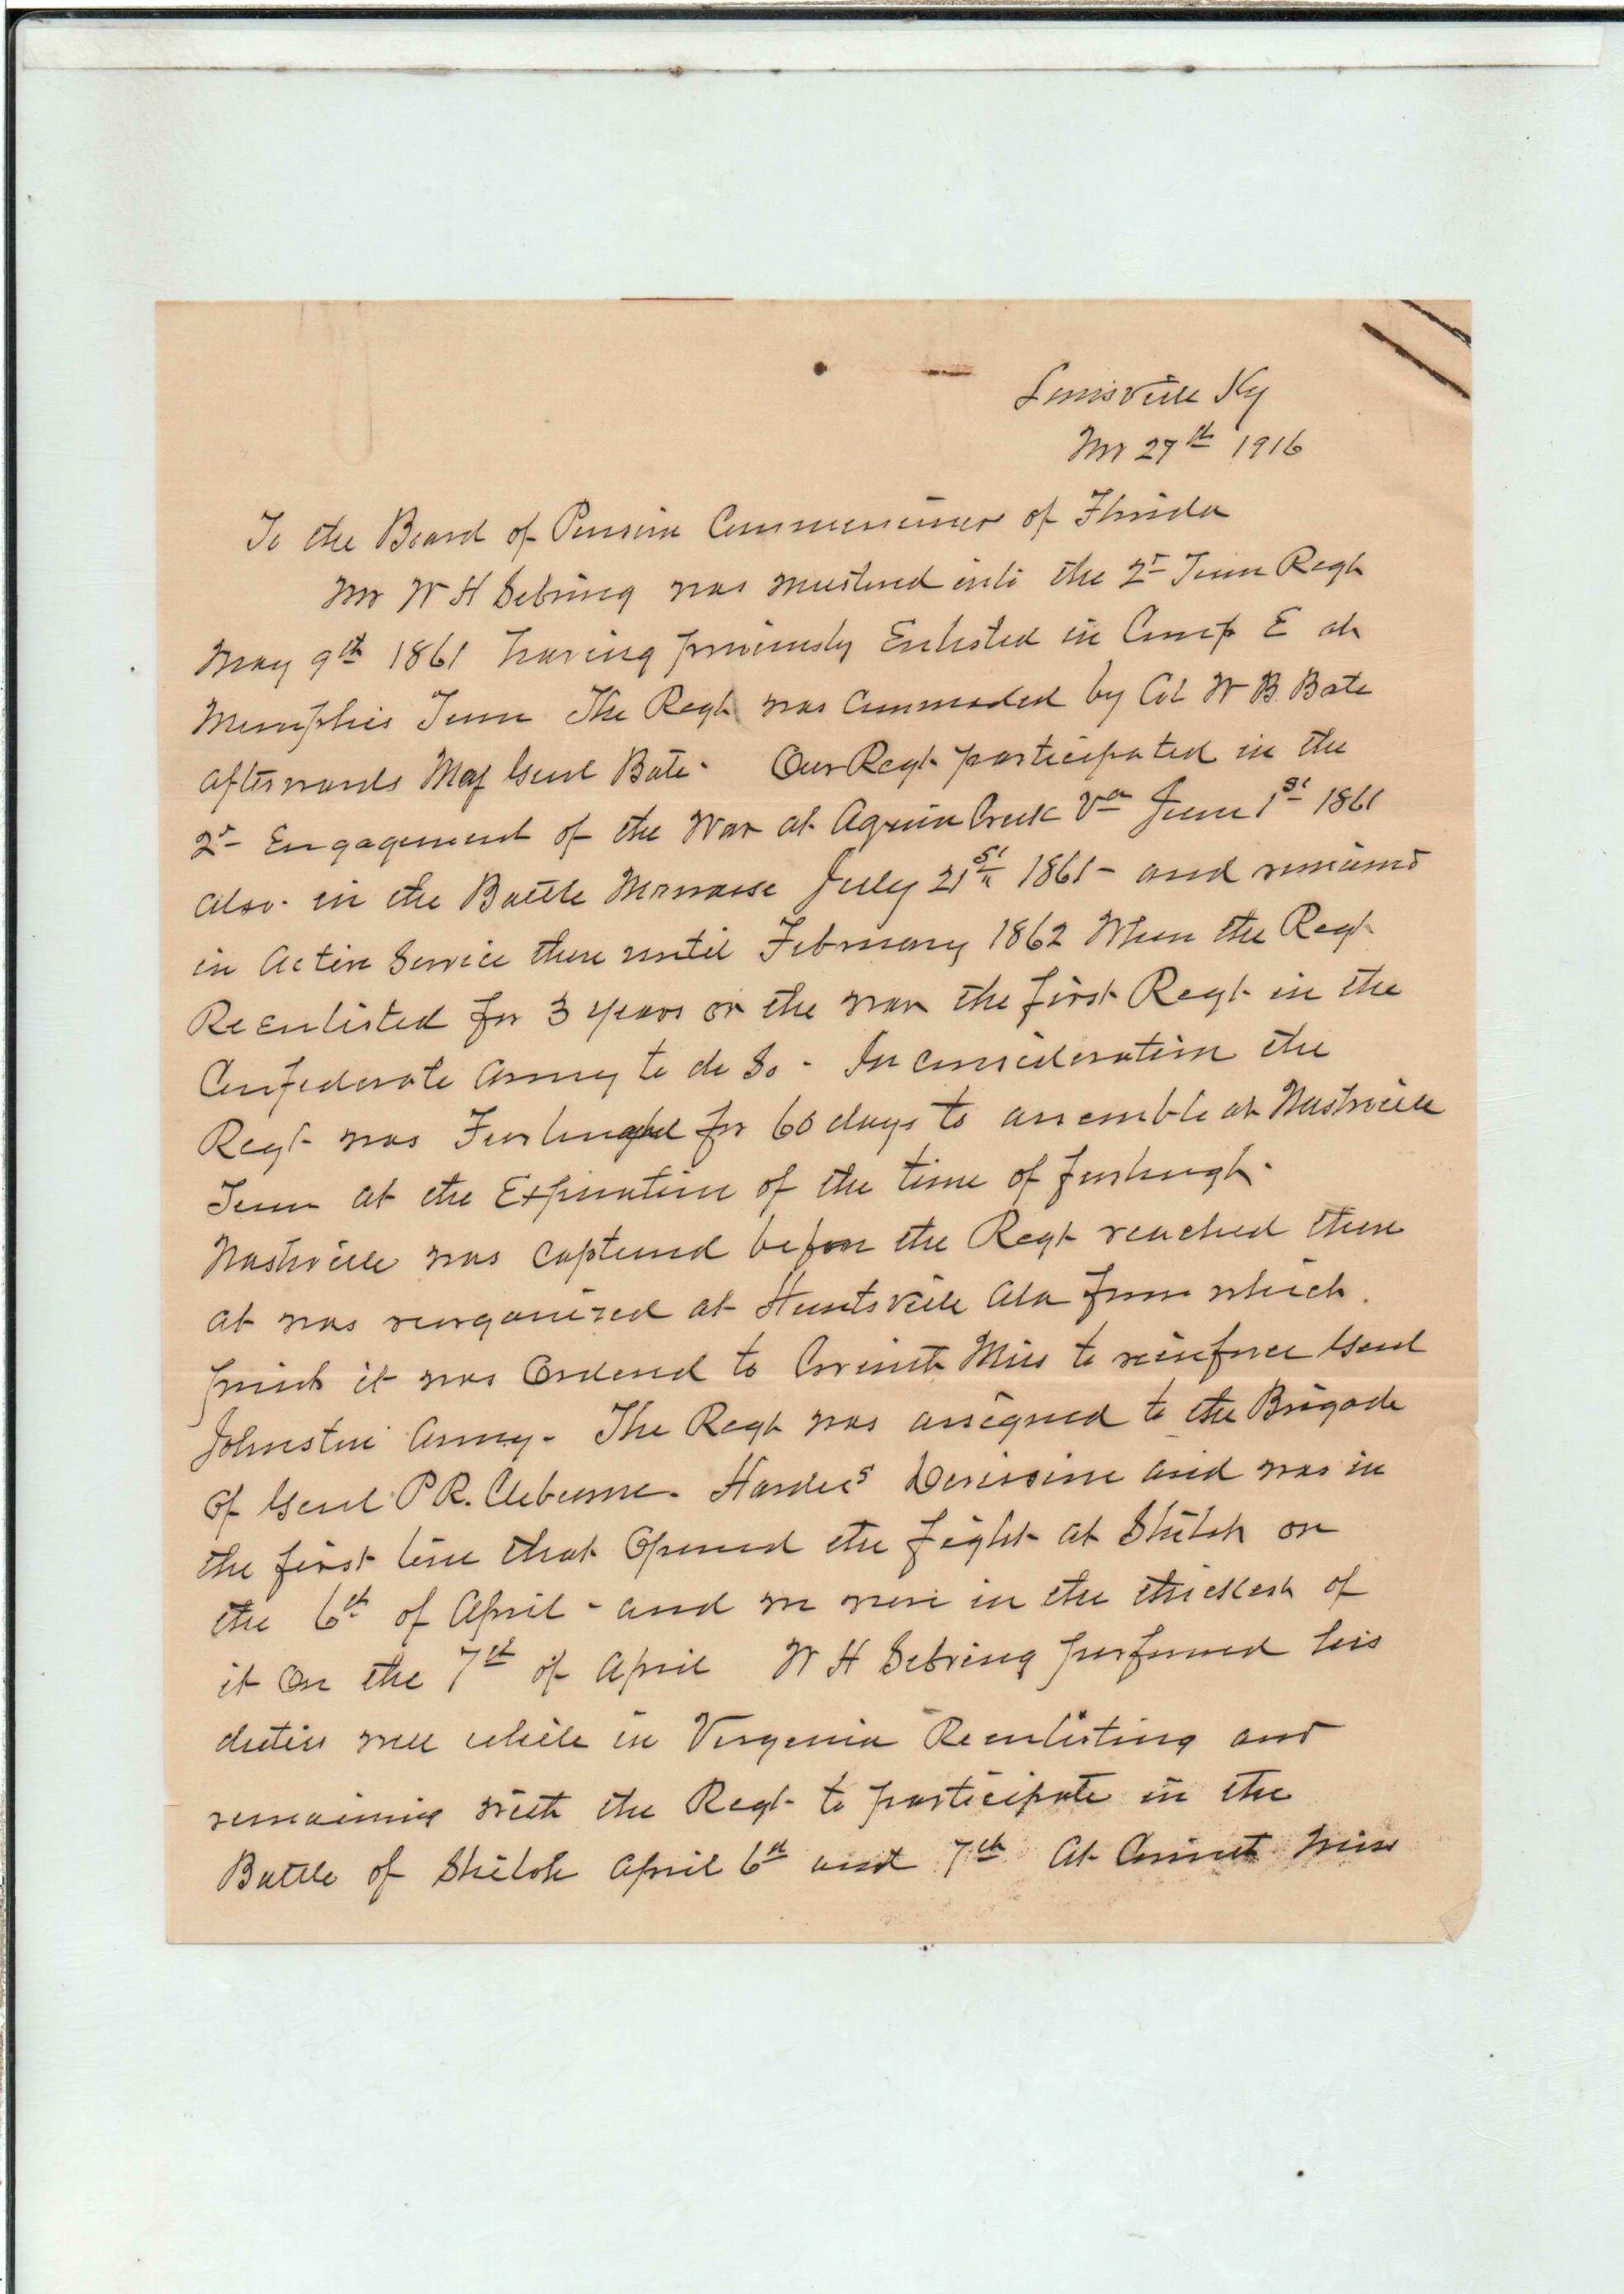 Louisville Ky
Mr 27th 1916
To the Board of Pension Commissioners of Florida
Mr W H Sebring was mustered into the 2d Tenn Regt
May 9th 1861 having previously Enlisted in Comp E at
Memphis Tenn The Regt was Commaded by Col W B Bate
afterwards Maj Genl Bate. Our Regt participated in the
2d Engagement of the War at Aquia Creek Va June 1st 1861
also in the Battle Manassa July 21st 1861 - and remained
in Active Service there until February 1862 When the Regt
Reenlisted for 3 years or the war the first Regt in the
Confederate Army to do So - In consideration the
Regt was Furloughed for 60 days to assemble at Nashville
Tenn at the Expiration of the time of furlough.
Nashville was captured before the Regt reached there
at was reorganized at Huntsville Ala from which
point it was Ordered to Corinth Miss to reinforce Genl
Johnston Army. The Regt was assigned to the Brigade
of Genl P R. Cleburne. Hardees Devission and was in
the first line that Opened the fight at Shiloh on
the 6th of April - and we were in the thickest of
it On the 7th of April W H Sebring performed his
duties well while in Virginia Reenlisting and
remaining with the Regt to participate in the
Battle of Shiloh April 6th and 7th At Corinth Miss